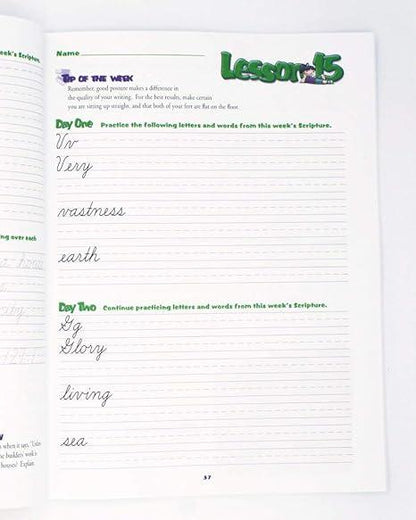 eek's Scripture.
ing over each
when it says, "Unless
the builders work's
houses? Explain
Name
Lesson 15
Tip of the Week
Remember, good posture makes a difference in
the quality of your writing. For the best results, make certain
you are sitting up straight, and that both of your feet are flat on the floor.
Day One Practice the following letters and words from this week's Scripture.
Vv
Very
vastness
earth
Day Two Continue practicing letters and words from this week's Scripture.
Gg
Glory
living
sea
37